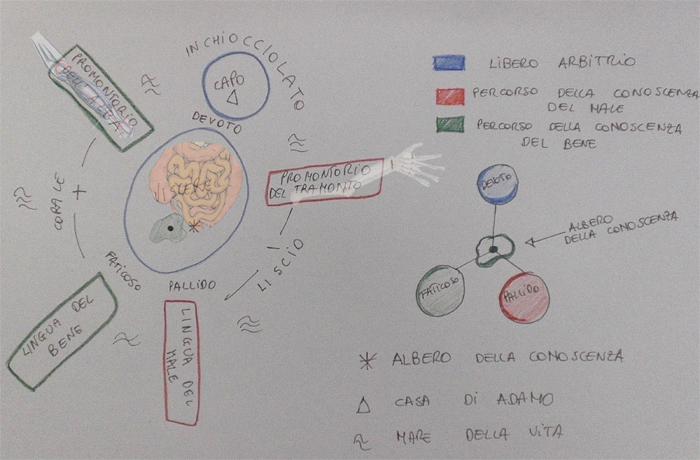 INCHIOCCIOLATO
CAPO
DEVOTO
PROMONTORIO
DELL'ALBA
PROMONTORIO
DEL TRAMONTO
VISCERE
CORALE
+
LISCIO
FATICOSO
PALLIDO
LINGUA DEL
BENE
LINGUA DEL
MALE
LIBERO ARBITRIO
PERCORSO DELLA CONOSCENZA
DEL MALE
PERCORSO DELLA CONOSCENZA
DEL BENE
DEVOTO
ALBERO
DELLA CONOSCENZA
FATICOSO
PALLIDO
ALBERO DELLA CONOSCENZA
CASA DI ADAMO
MARE DELLA VITA